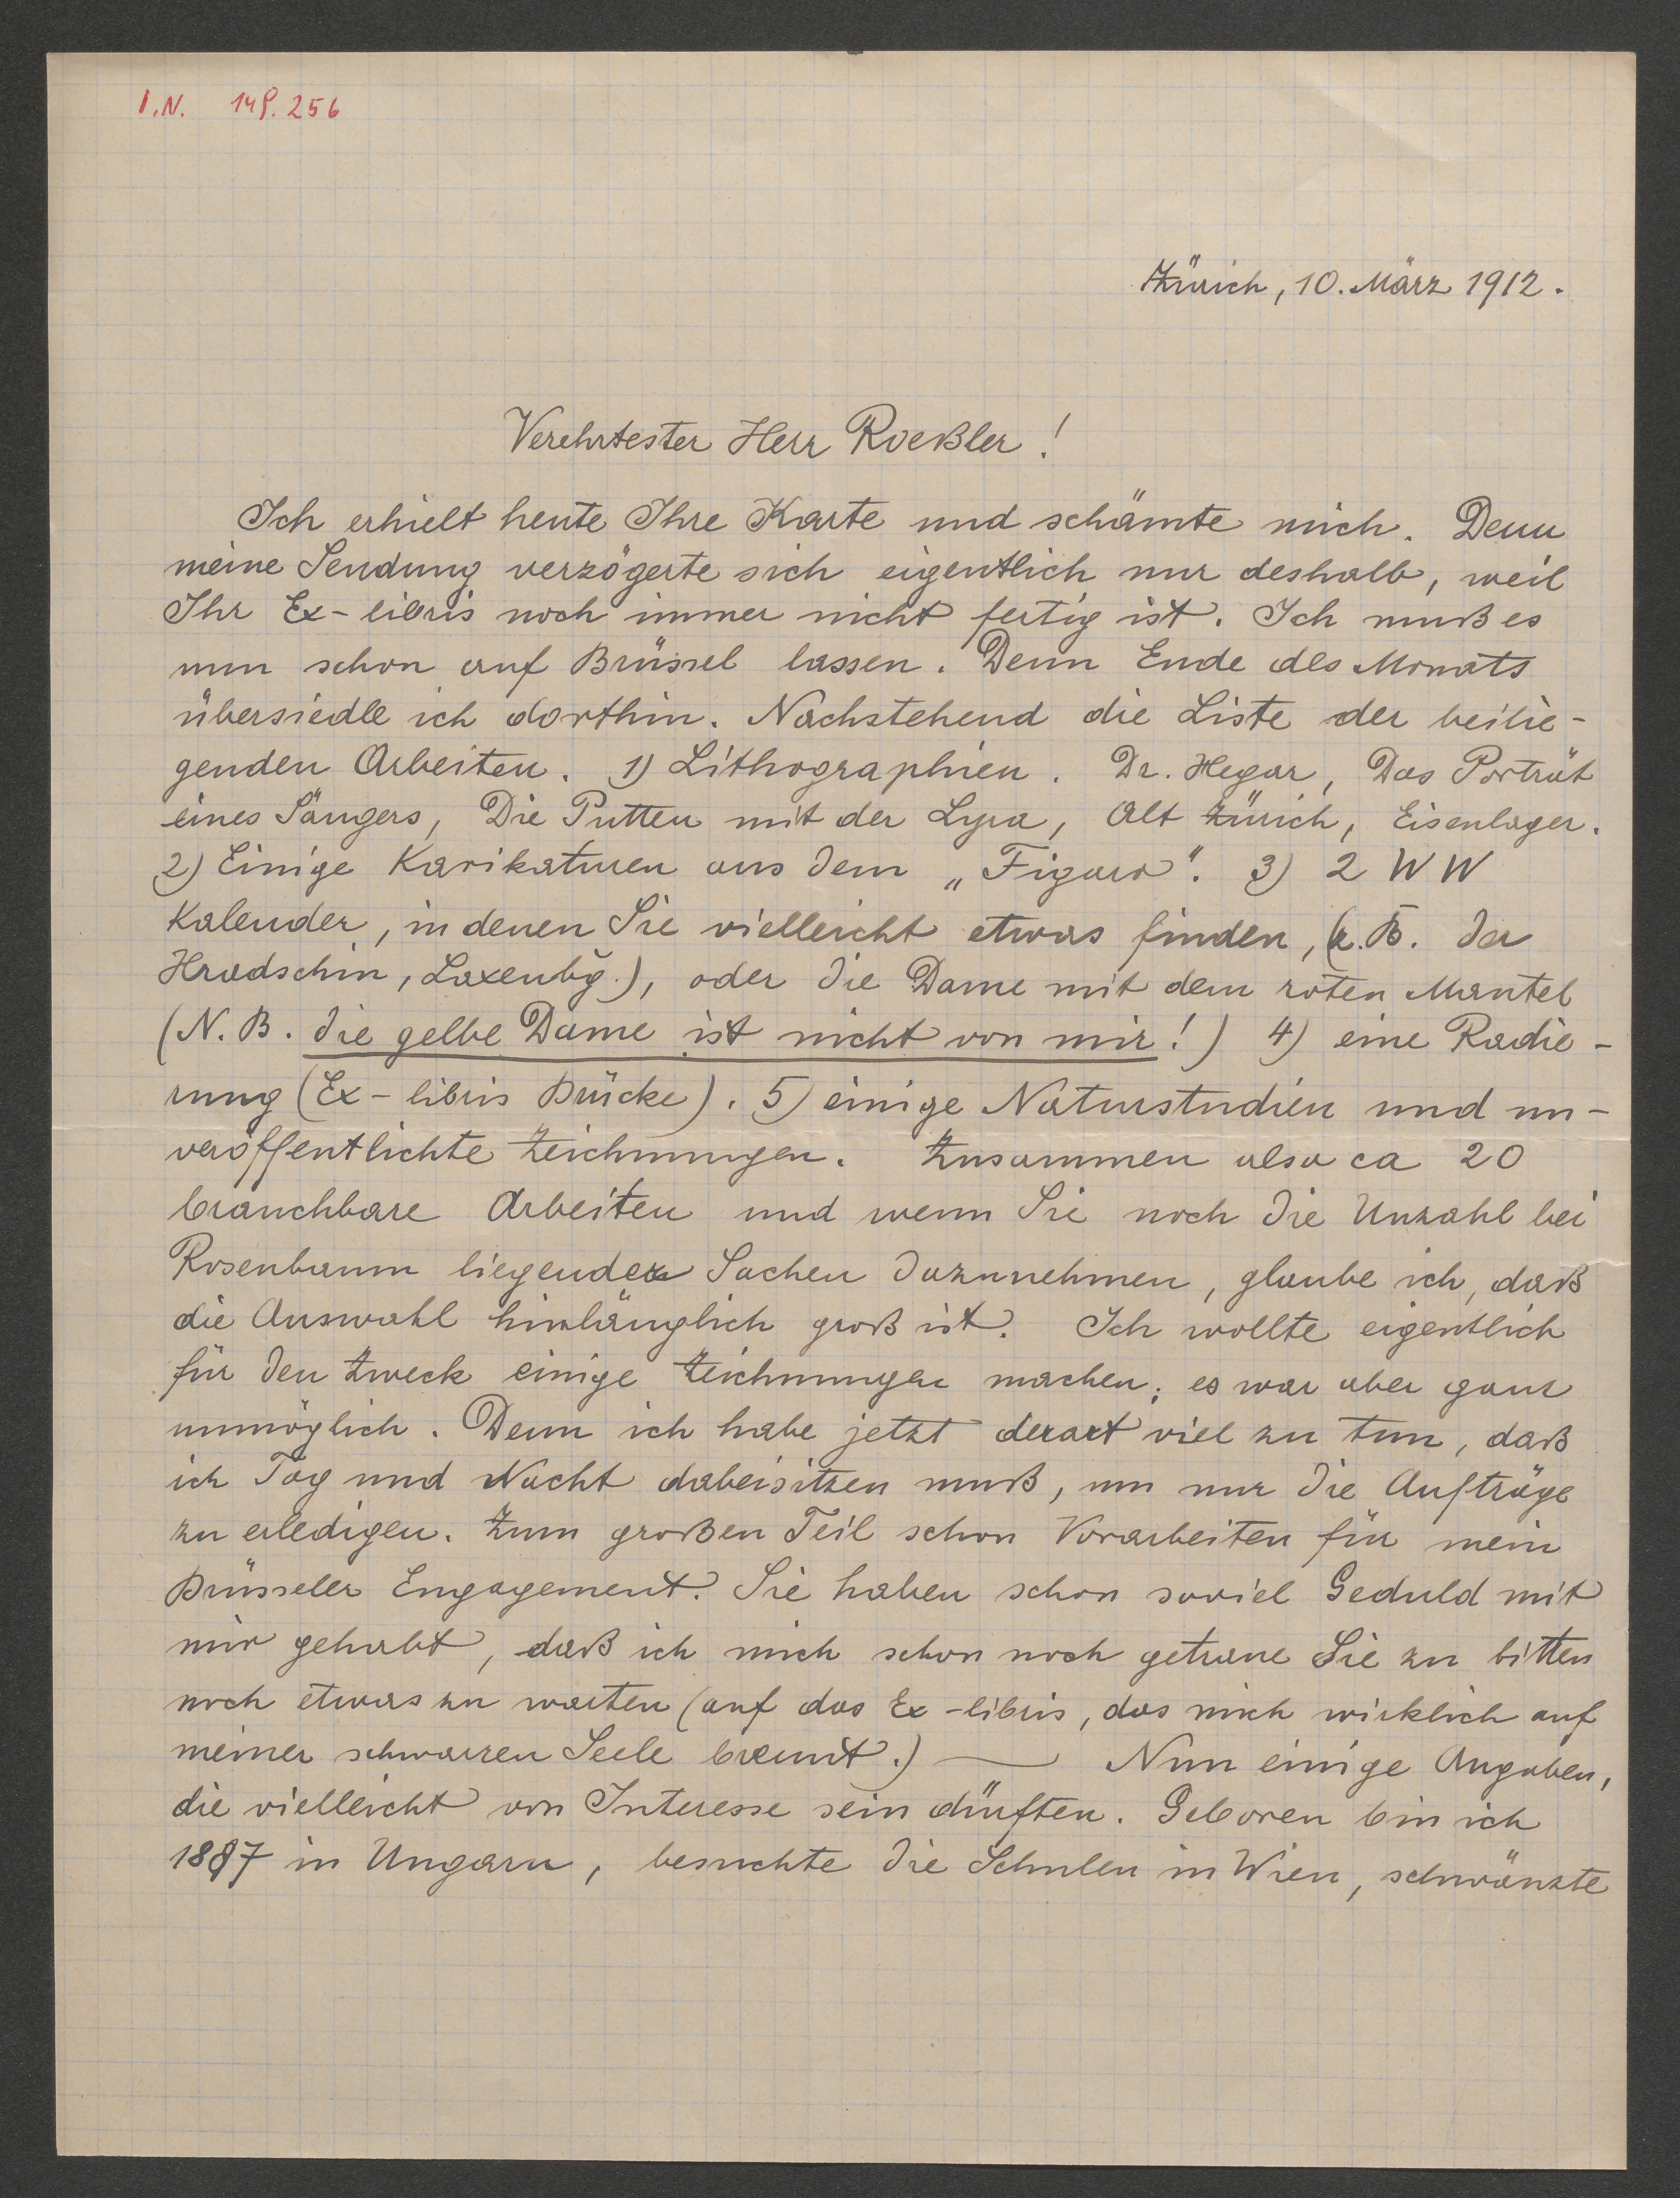 I.N. 149.256
Zürich, 10. März 1912.
Verehrtester Herr Roeßler!
Ich erhielt heute Ihre Karte und schämte mich. Denn
meine Sendung verzögerte sich eigentlich nur deshalb, weil
Ihr Ex-libris noch immer nicht fertig ist. Ich muß es
nun schon auf Brüssel lassen. Denn Ende des Monats
übersiedle ich dorthin. Nachstehend die Liste der beilie-
genden Arbeiten. 1) Lithographien. Dr. Hegar, Das Porträt
eines Sängers, Die Putten mit der Lyra, Alt Zürich, Eisenlager.
2) Einige Karikaturen aus dem „Figaro“. 3) 2 W W
Kalender, in denen Sie vielleicht etwas finden, (z.B. der
Hradschin, Laxenbg.), oder die Dame mit dem roten Mantel
(N.B. die gelbe Dame ist nicht von mir!) 4) eine Radie-
rung (Ex-libris Brücke). 5) einige Naturstudien und un-
veröffentlichte Zeichnungen. Zusammen also ca 20
brauchbare Arbeiten und wenn Sie noch die Unzahl bei
Rosenbaum liegender Sachen dazunehmen, glaube ich, daß
die Auswahl hinlänglich groß ist. Ich wollte eigentlich
für den Zweck einige Zeichnungen machen; es war aber ganz
unmöglich. Denn ich habe jetzt derart viel zu tun, daß
ich Tag und Nacht dabeisitzen muß, um nur die Aufträge
zu erledigen. Zum großen Teil schon Vorarbeiten für mein
Brüsseler Engagement. Sie haben schon soviel Geduld mit
mir gehabt, daß ich mich schon noch getraue Sie zu bitten
noch etwas zu warten (auf das Ex-libris, das mich wirklich auf
meiner schwarzen Seele brennt.) — Nun einige Angaben,
die vielleicht von Interesse sein dürften. Geboren bin ich
1887 in Ungarn, besuchte die Schulen in Wien, schwänzte